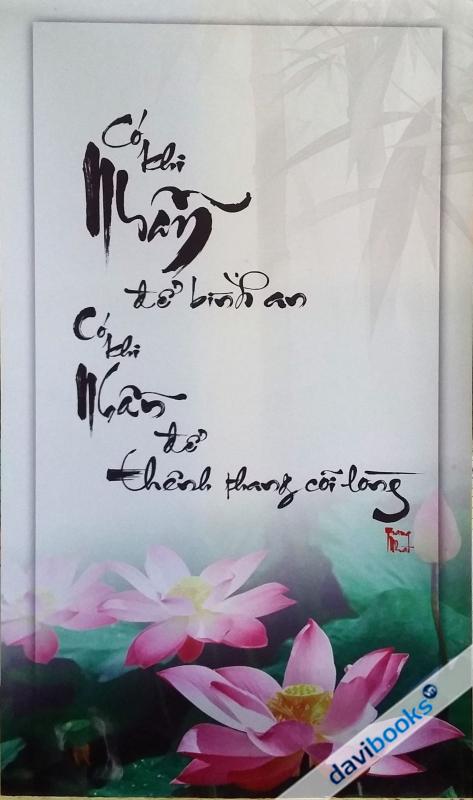 Có
khi
Nhẫn
để bình an
Có
khi
Nhẫn
để
thênh thang cõi lòng
davibooks.vn